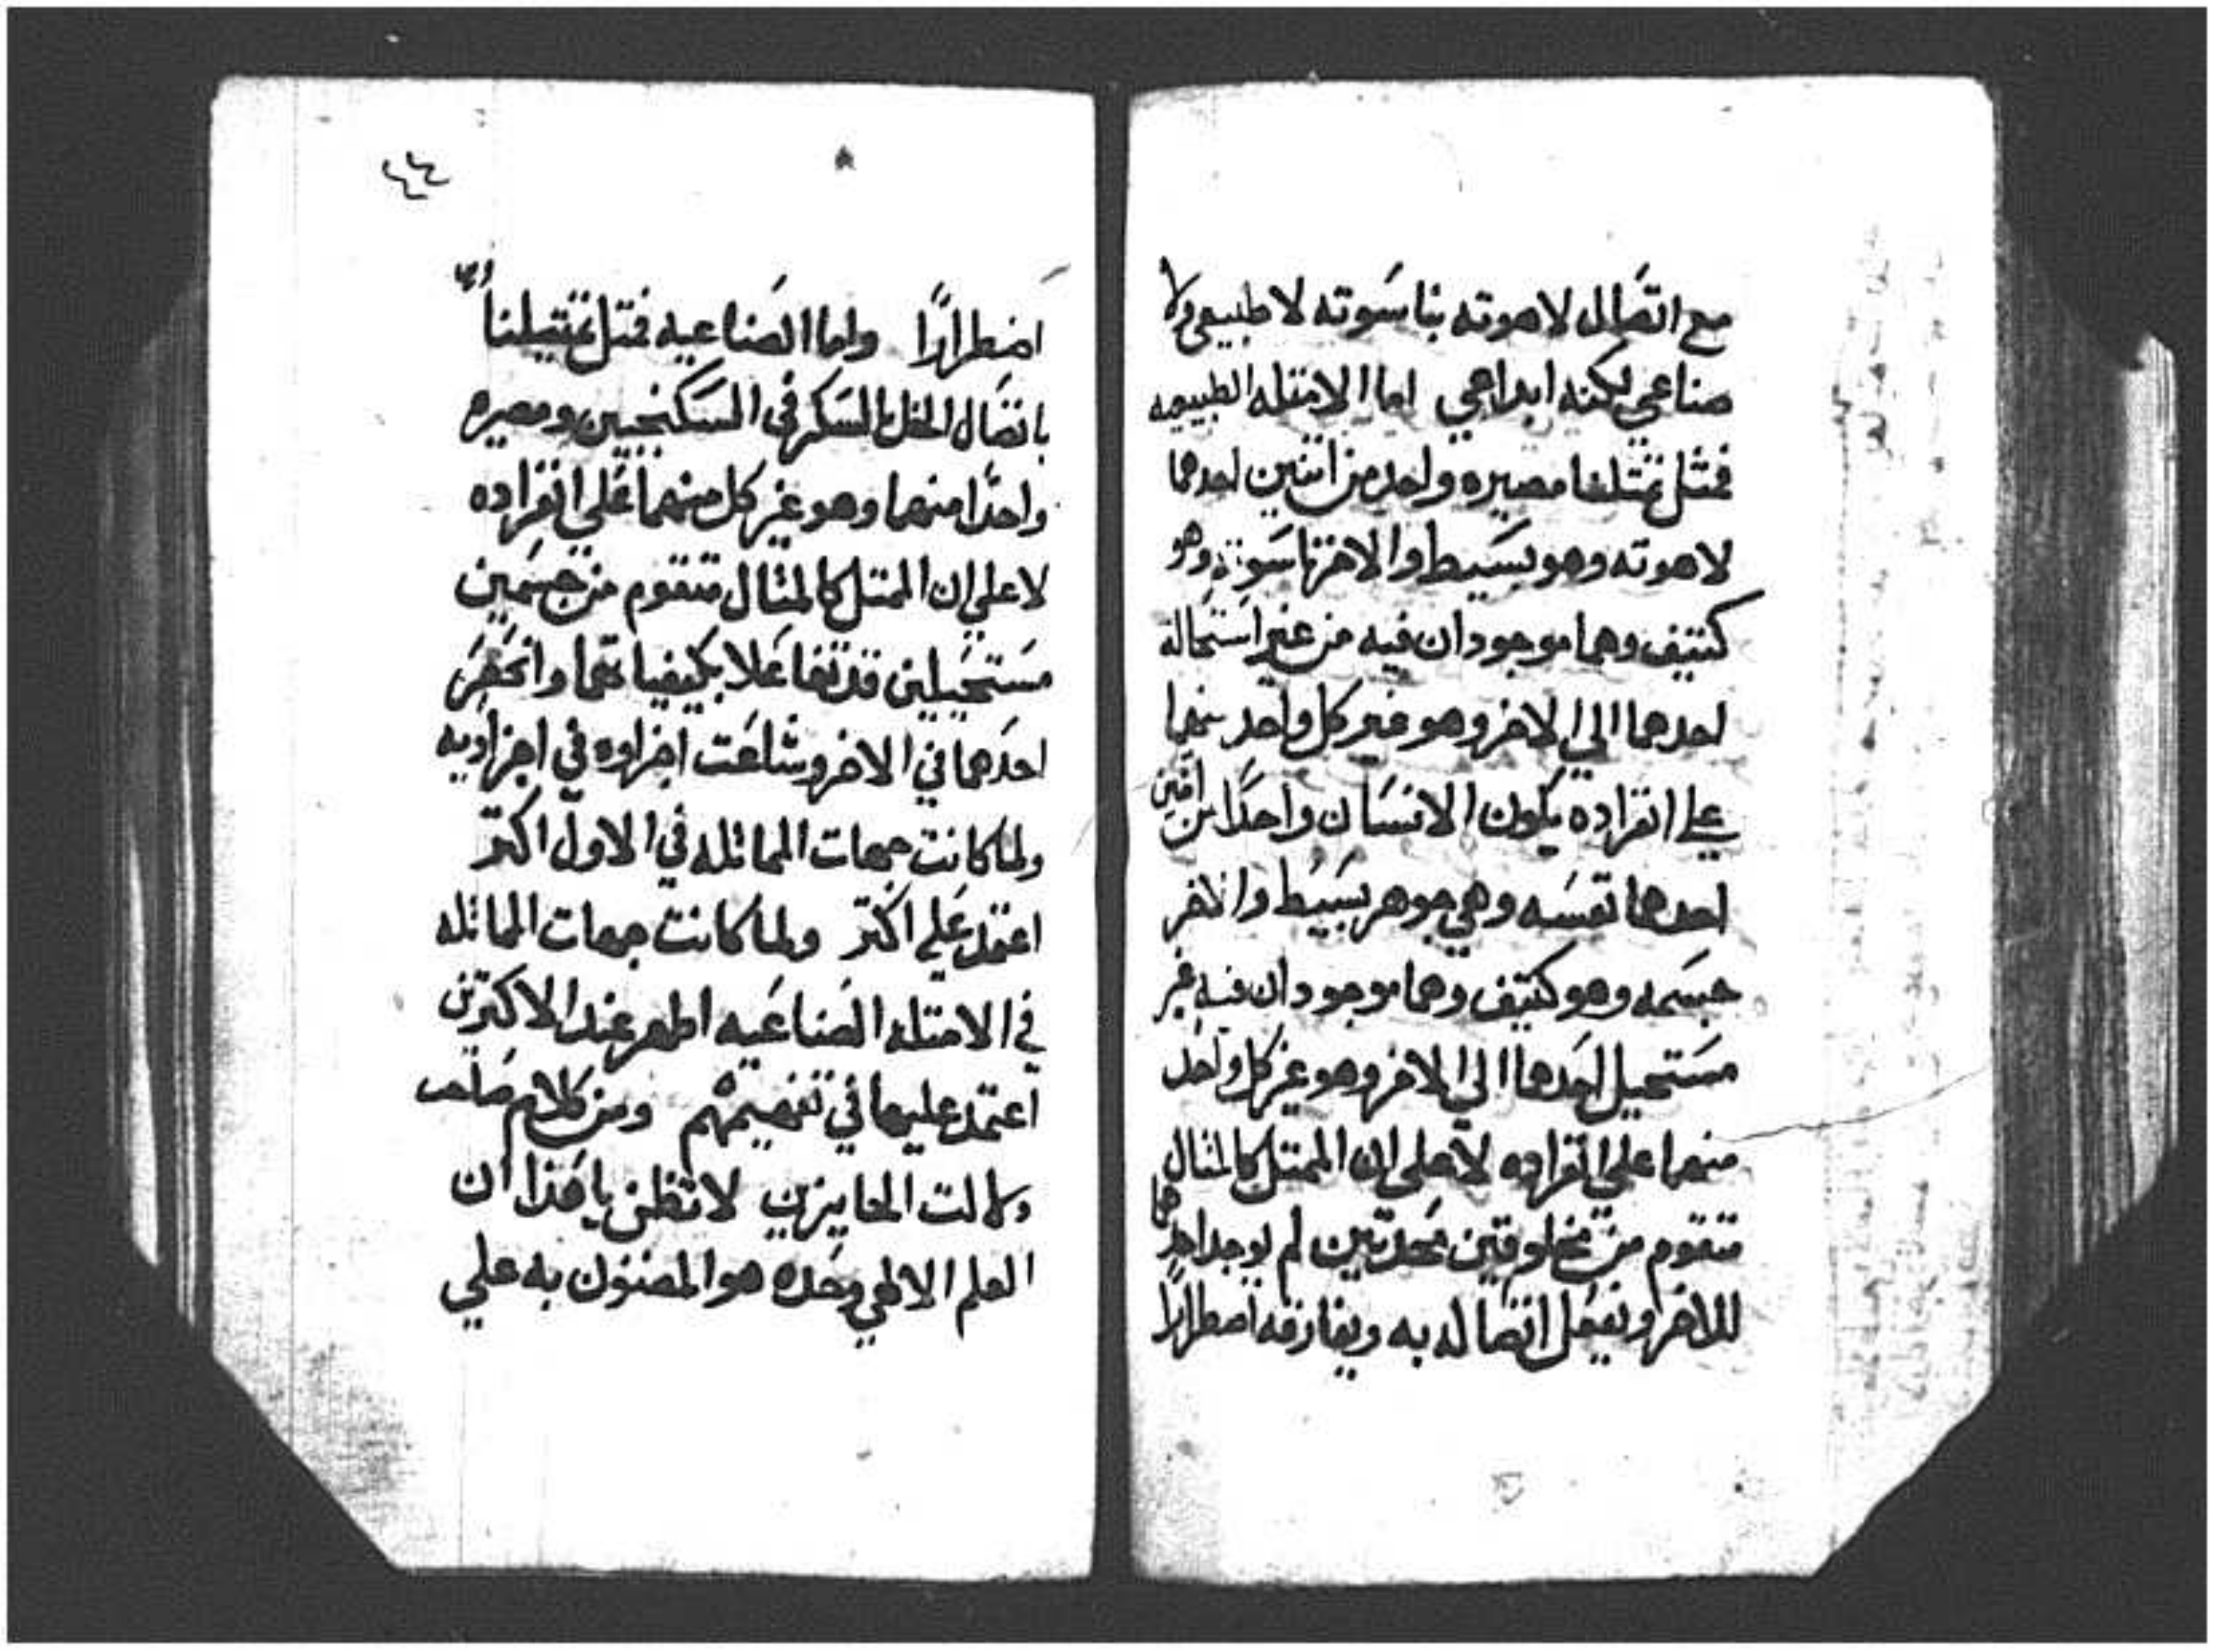 مع اتصال لاهوته بناسوته لا طبيعي ولا
صناعي لكنه ابداعي اما الامثله الطبيعيه
فمثل تمثلنا مصيره واحد من اثنين احدهما
لاهوته وهو بسيط والاخر ناسوته وهو
كثيف وهما موجودان فيه من غير استحالة
احدهما الي الاخر وهو غير كل واحد منهما
علي انفراده بكون الانسان واحدًا من اثنين
احدهما نفسه وهي جوهر بسيط والاخر
جسمه وهو كثيف وهما موجودان فيه غير
مستحيل احدهما الي الاخر وهو غير كل واحد
منهما علي انفراده لا علي ان الممثل كالمثال
متقوم من مخلوقين محدثين لم يوجد احدهما
للاخر وبفعل اتصاله به ويفارقه اضطرارًا
٤٤
اضطرارًا واما الصناعيه فمثل تمثيلنا
باتصال الخل بالسكر في السكنجبين ومصيره
واحدًا منهما وهو غير كل منهما علي انفراده
لا علي ان الممثل كالمثال متقوم من جسمين
مستحيلين قد تفاعلا بكيفياتهما وانحصر
احدهما في الاخر وشاعت اجزاوه في اجزاويه
ولما كانت جهات المماثله في الاول اكثر
اعتمد علي اكثر ولما كانت جهات المماثله
في الامثله الصناعيه اظهر عند الاكثرين
اعتمد عليها في تفهيمهم ومن كلام صاحب
لا تظن يا هذا ان
العلم الالهي وحده هو المضنون به علي